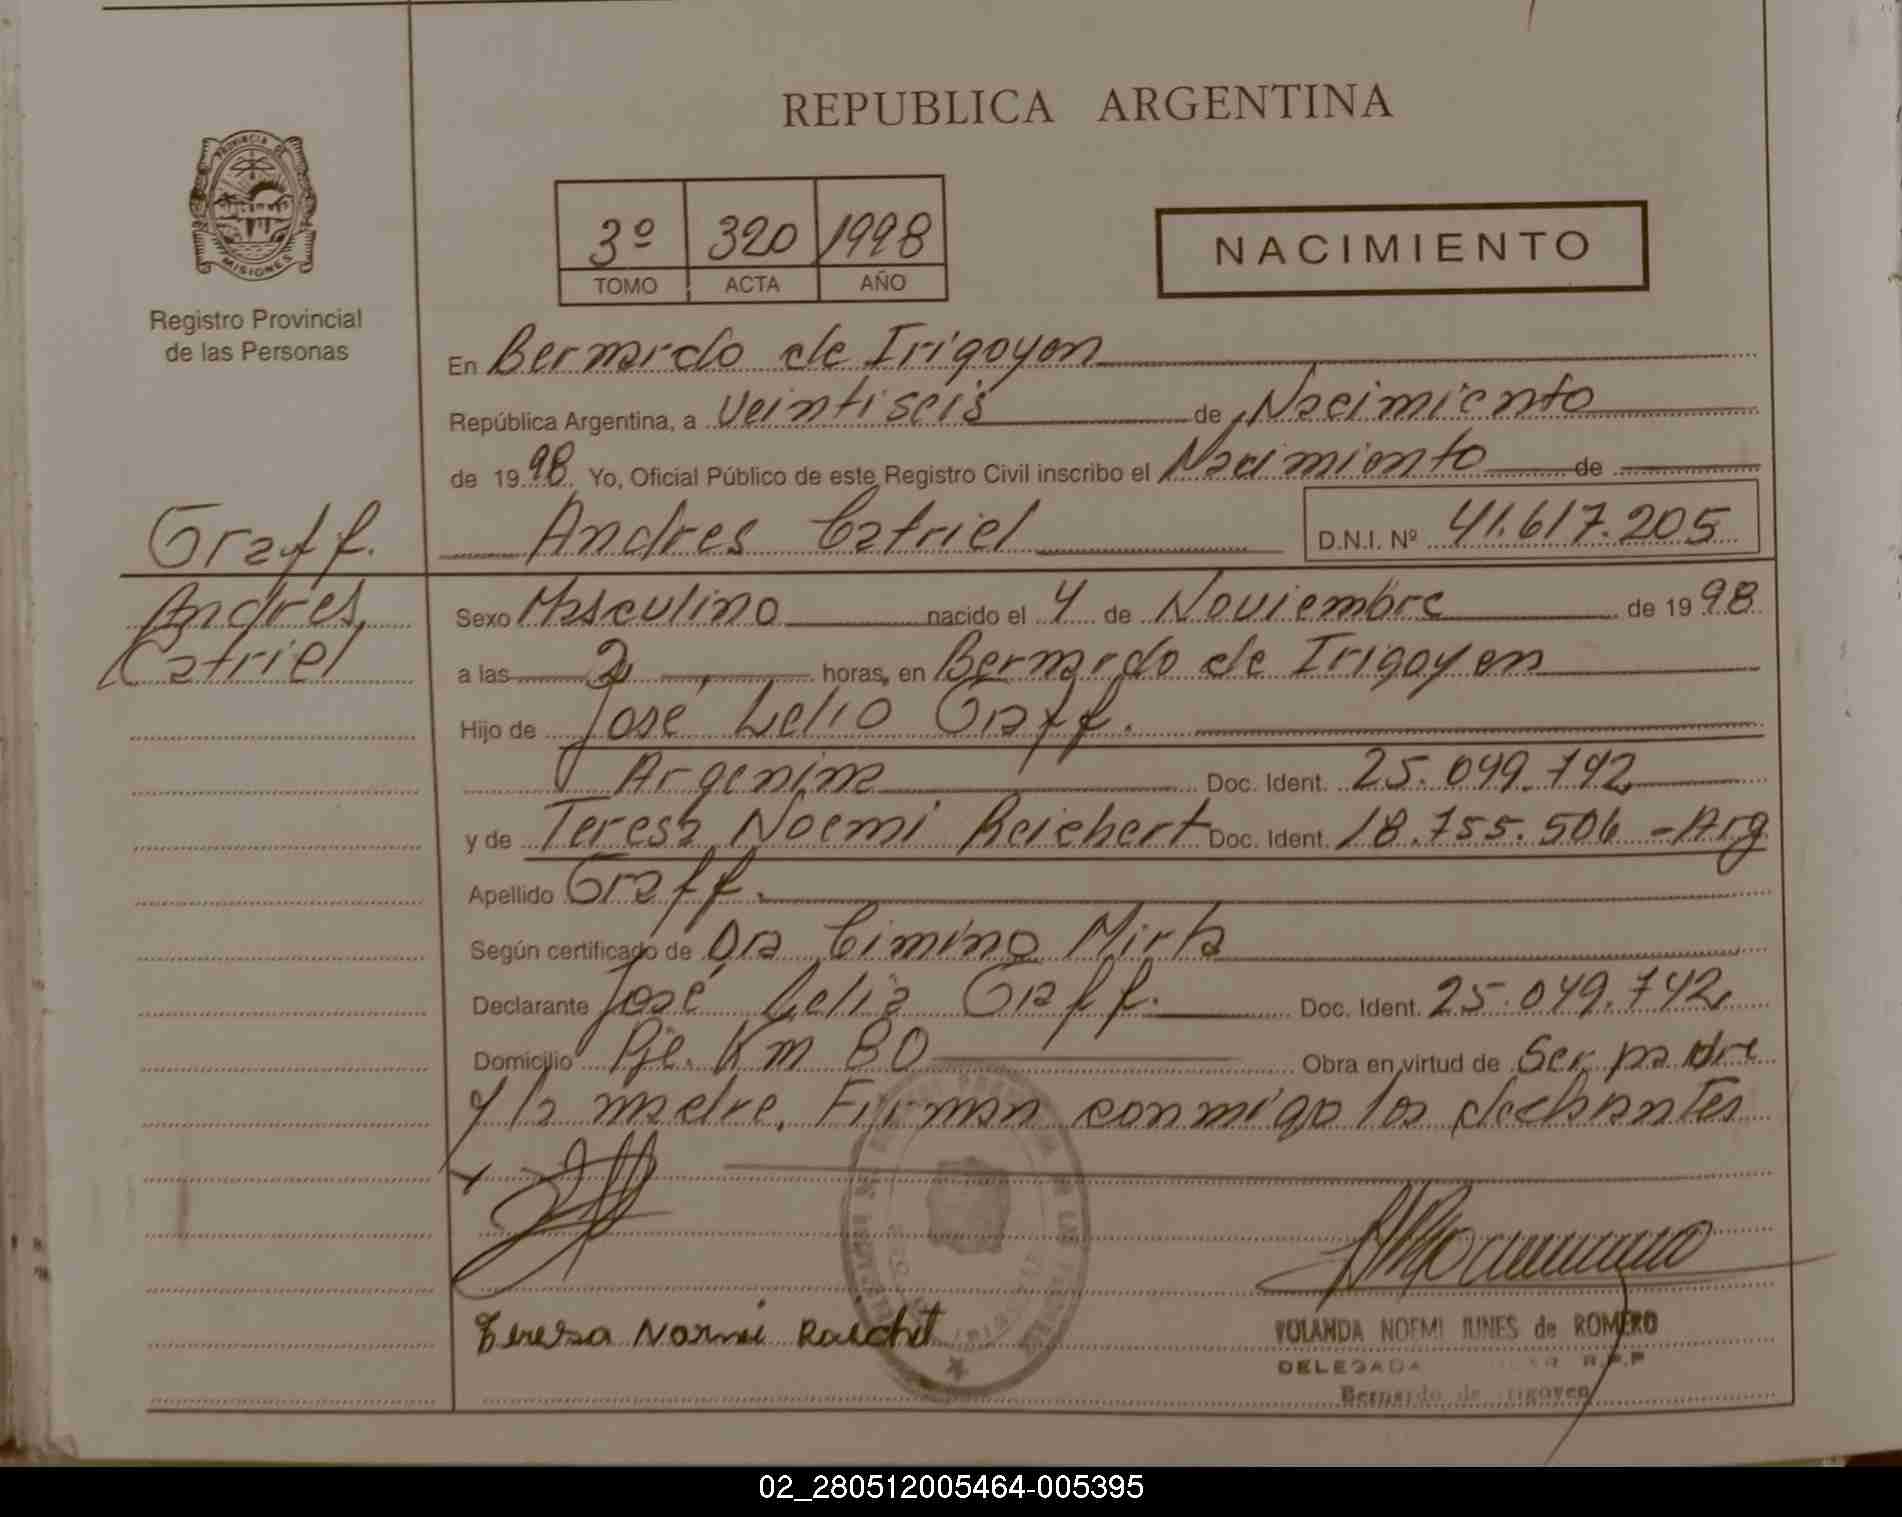 REPUBLICA ARGENTINA
PROVINCIA DE
MISIONES
Registro Provincial
de las Personas
3º 320 1998
TOMO ACTA AÑO
NACIMIENTO
En Bernardo de Irigoyen
República Argentina, a Veintiseis de Nacimiento
de 1998 Yo, Oficial Público de este Registro Civil inscribo el Nacimiento de
Graff.
Andres Catriel
D.N.I. Nº 41.617.205
Andres
Catriel
Sexo Masculino nacido el 4 de Noviembre de 1998
a las 2 horas, en Bernardo de Irigoyen
Hijo de José Lelio Graff.
Argenina Doc. Ident. 25.049.742
y de Teresa Noemi Reichert Doc. Ident. 18.755.506 - Arg
Apellido Graff.
Según certificado de Dra Cimino Mirta
Declarante José Graff. Doc. Ident. 25.049.742
Domicilio Pje. Km 80 Obra en virtud de Ser padre
y la madre. Firman conmigo los
Teresa Noemi
YOLANDA NOEMI de ROMERO
DELEGADA R.P.P
Bernardo de Irigoyen
02_280512005464-005395